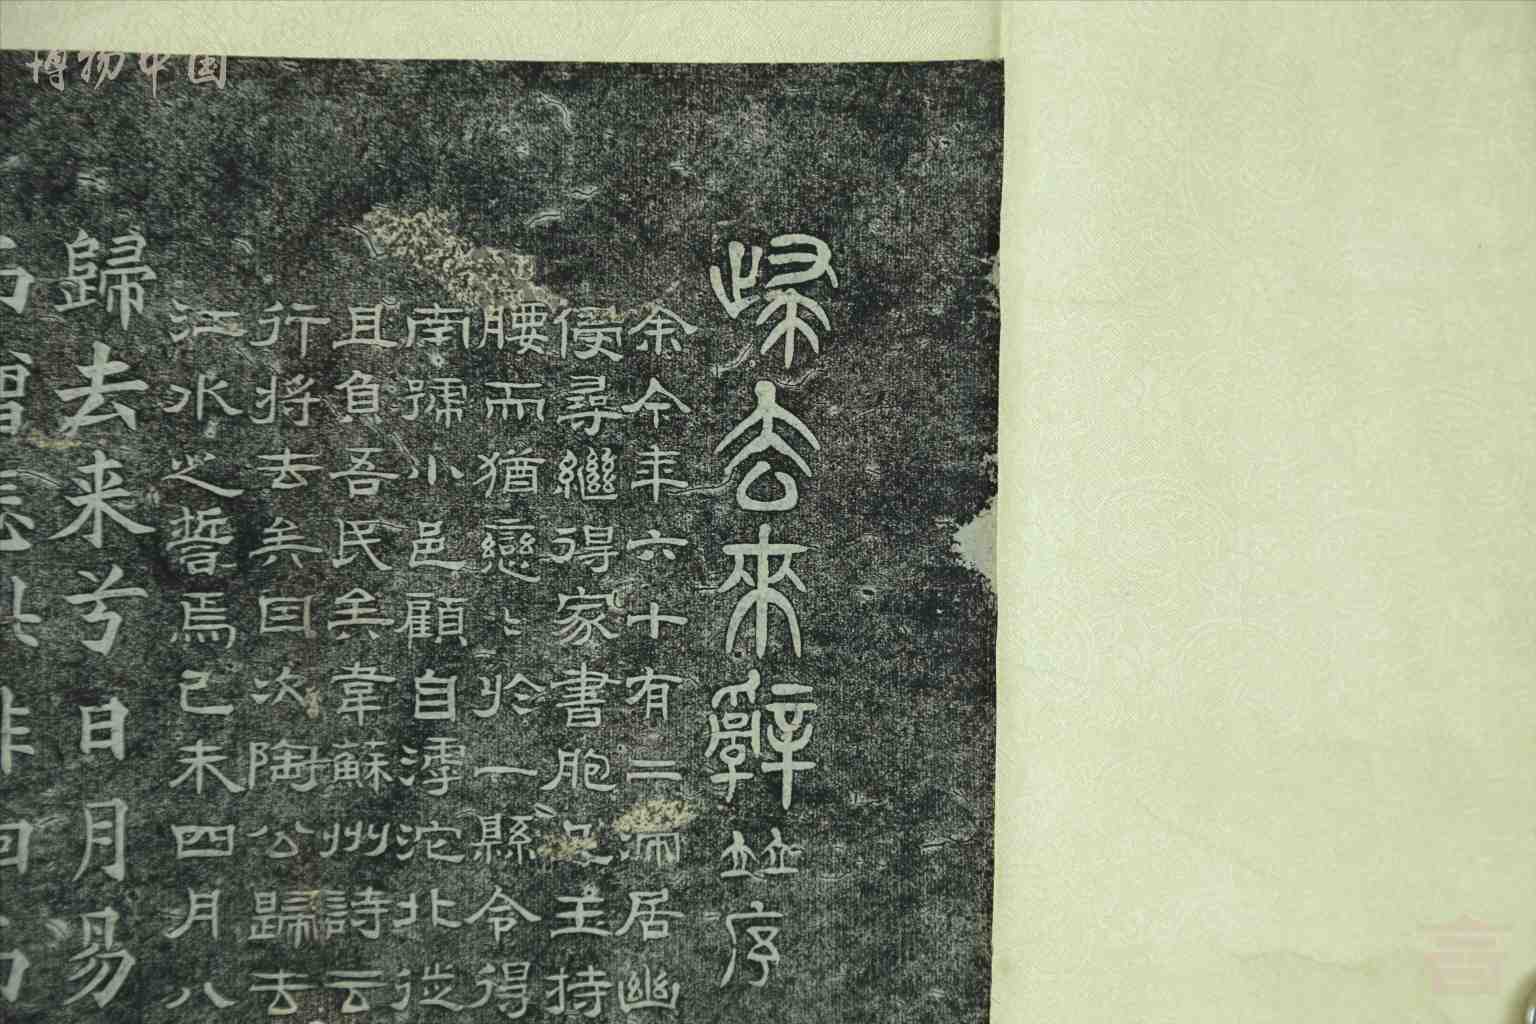 歸去來辭並序
余今年六十有二 居幽
侵尋繼得家書胞 主持
腰而猶戀〻於一縣令得
南歸小邑顧自滹沱北從
且負吾民矣韋蘇州詩云
行將去矣因次陶公歸去
江水之誓焉己未四月八
歸去来兮日月易
博物中国